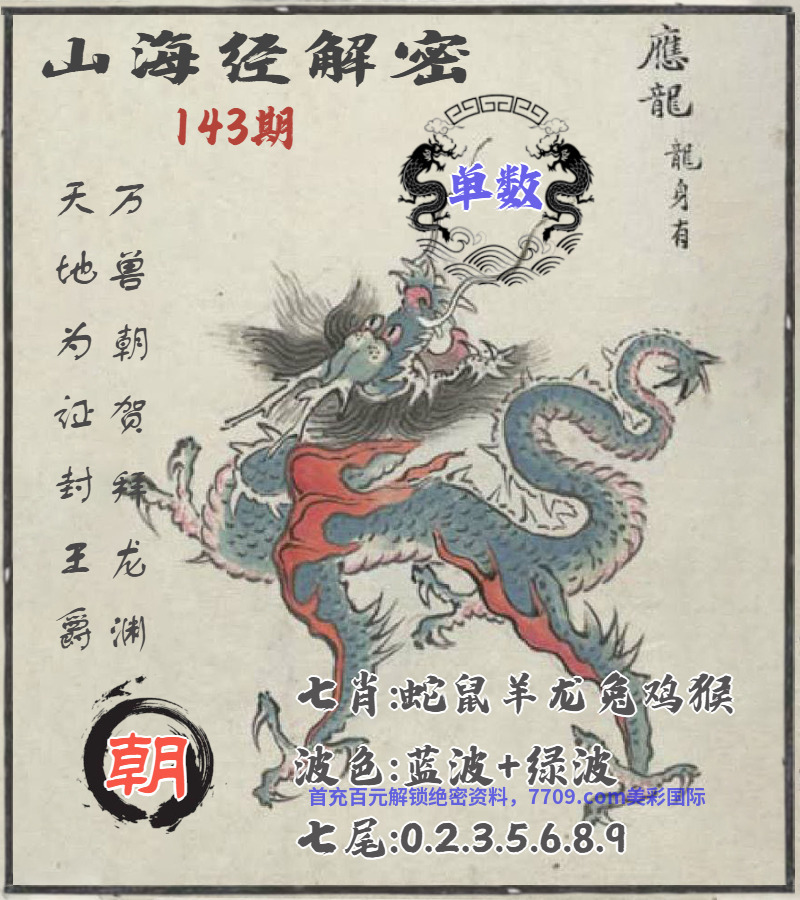 山海经解密
143期
應龍
龍身有
单数
万兽朝贺拜龙渊
天地为证封王爵
朝
七肖:蛇鼠羊龙兔鸡猴
波色:蓝波+绿波
首充百元解锁绝密资料，7709.com美彩国际
七尾:0.2.3.5.6.8.9